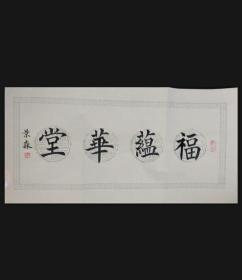 福蘊華堂
景森